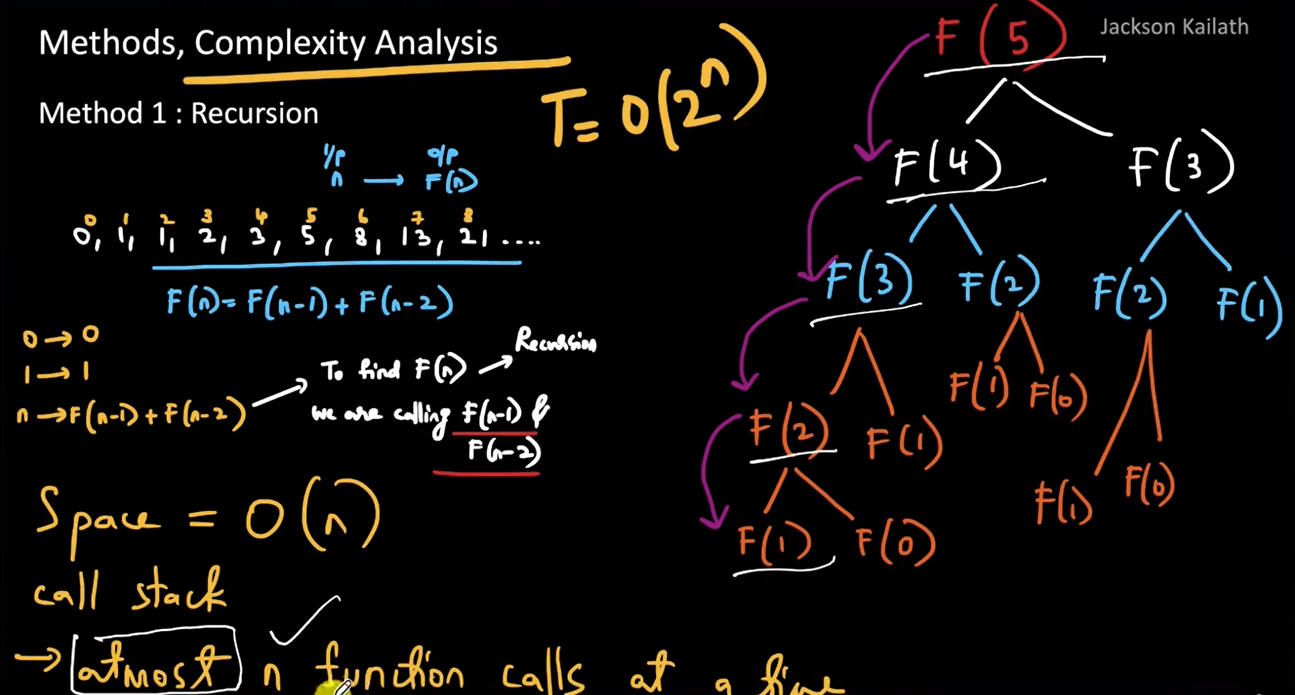 Methods, Complexity Analysis
Jackson Kailath
Method 1 : Recursion
T = O(2^n)
I/p O/p
n → F(n)
0 1 2 3 4 5 6 7 8
0, 1, 1, 2, 3, 5, 8, 13, 21, ....
F(n) = F(n-1) + F(n-2)
0 → 0
1 → 1
n → F(n-1) + F(n-2)
To find F(n) → Recursion
we are calling F(n-1) &
F(n-2)
Space = O(n)
call stack
→ atmost n function calls at a time
F(5)
F(4) F(3)
F(3) F(2) F(2) F(1)
F(2) F(1) F(1) F(0) F(1) F(0)
F(1) F(0)